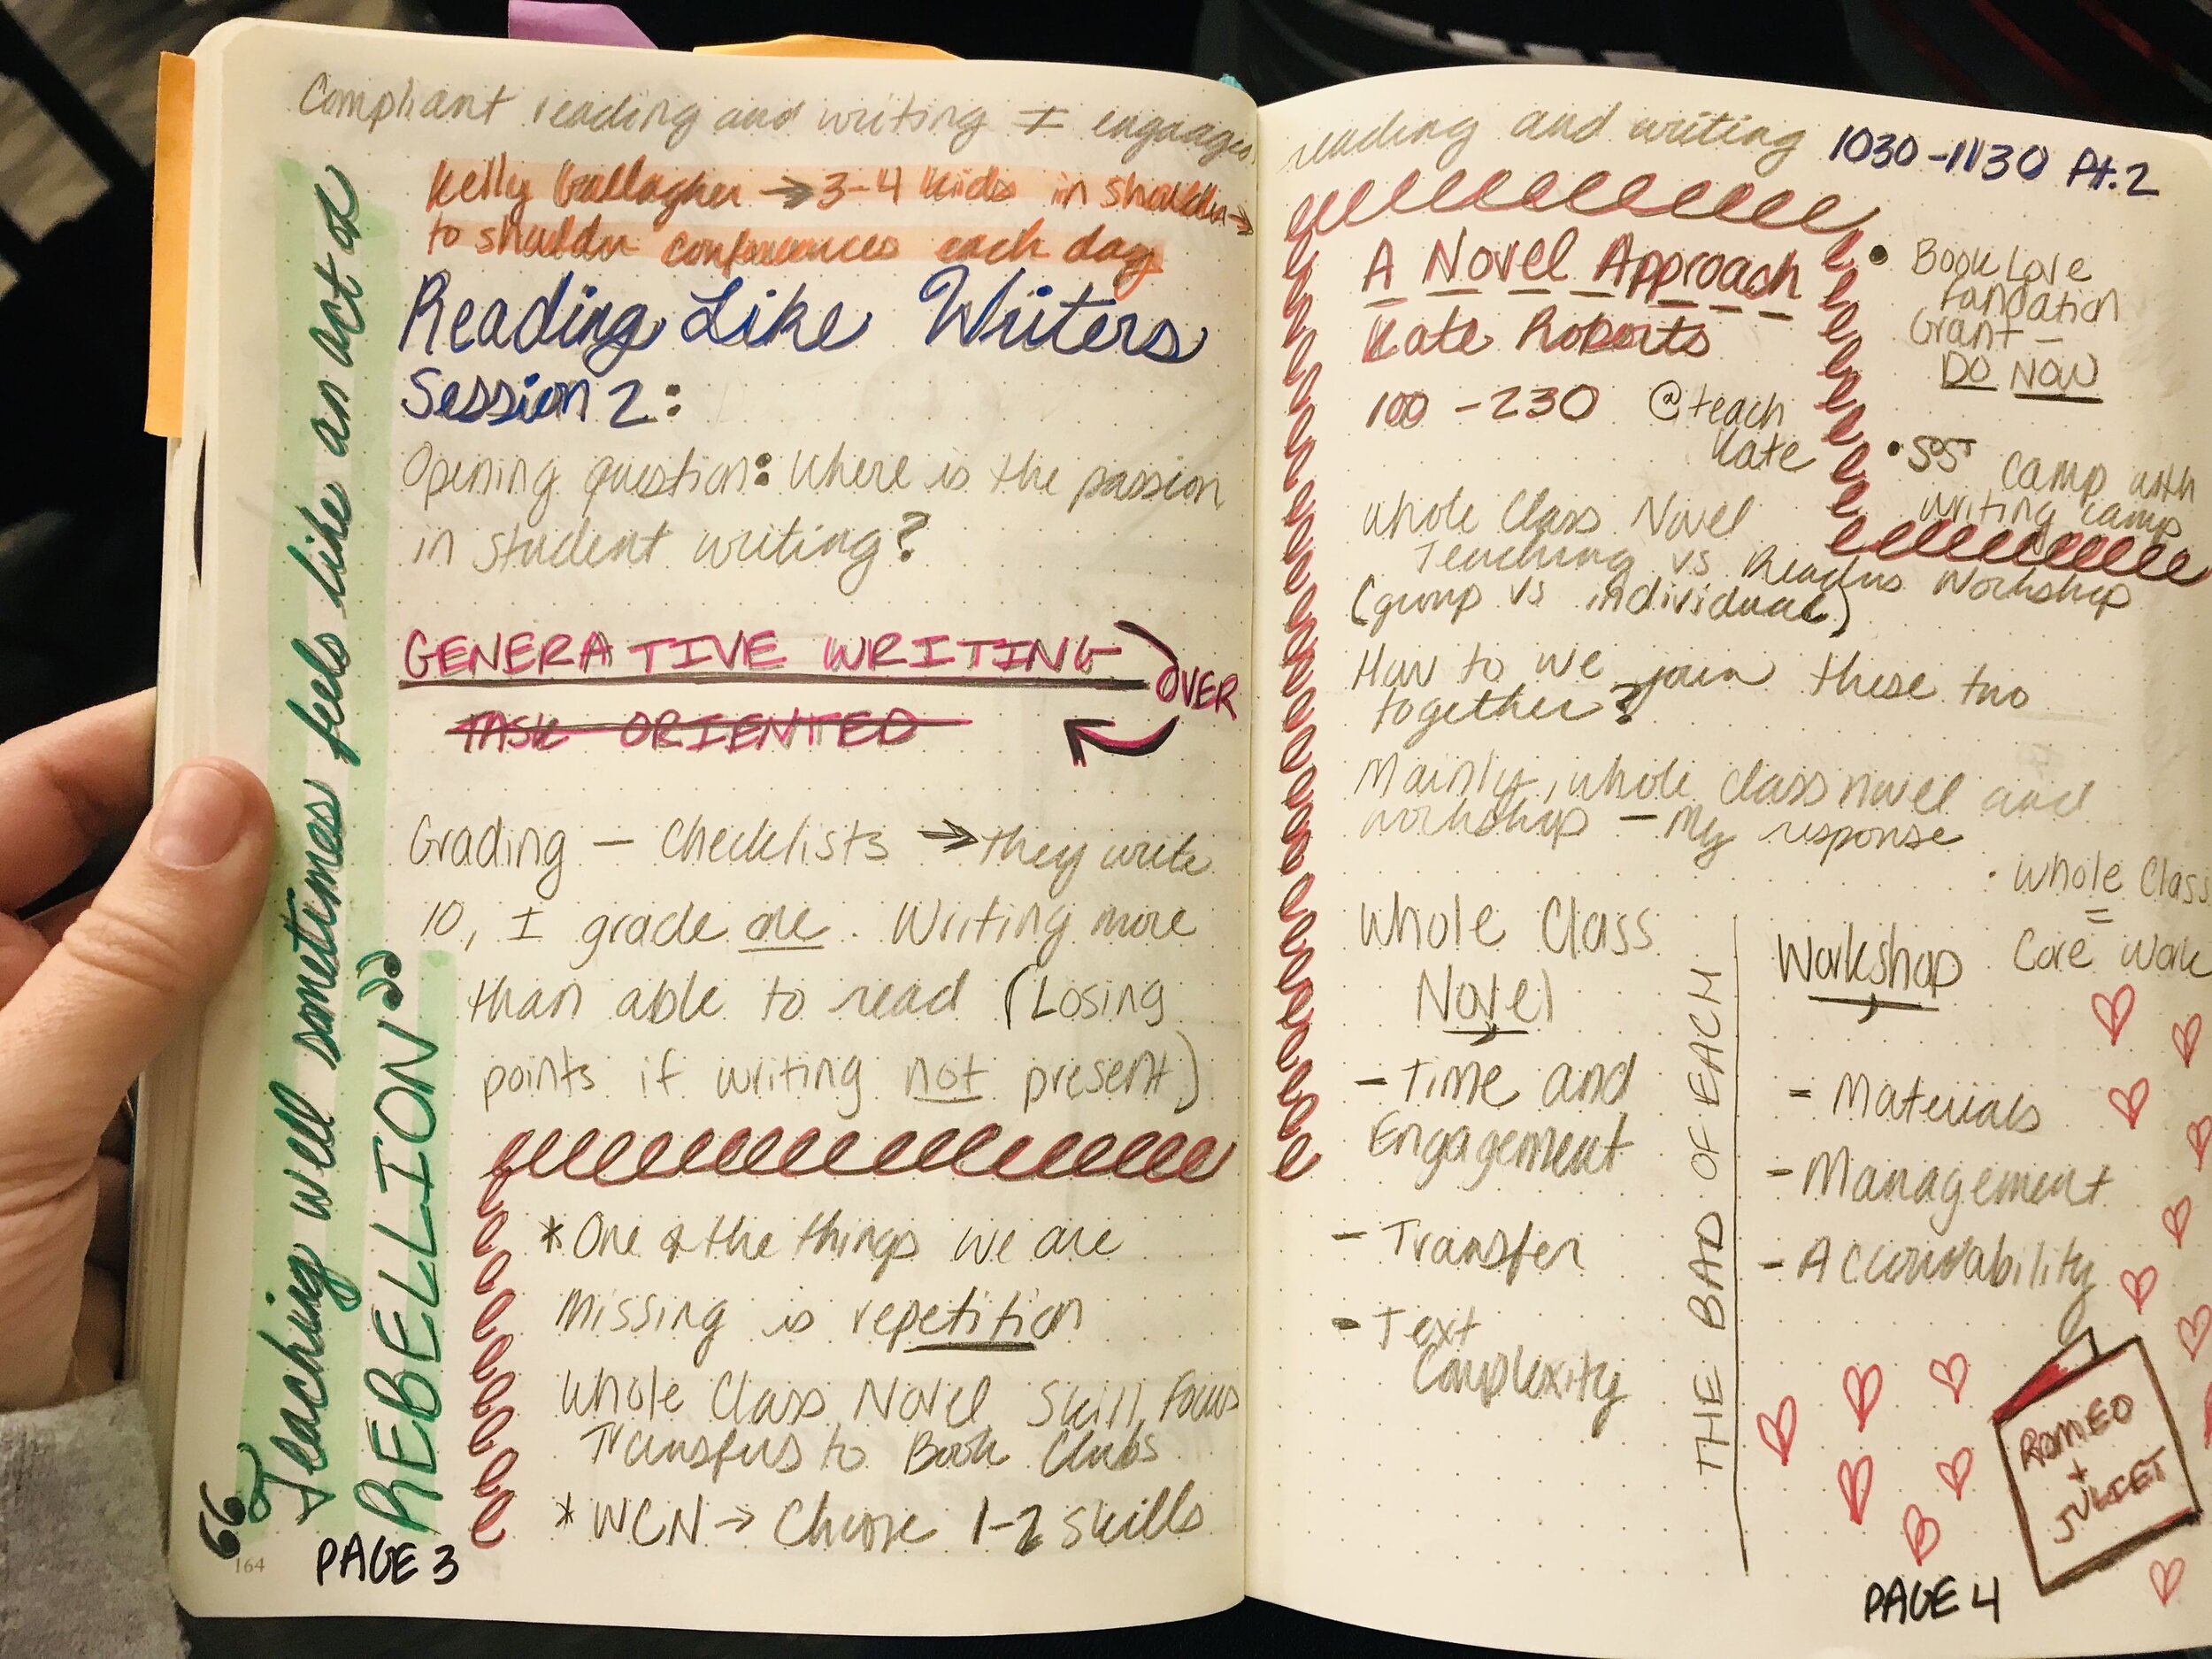 Compliant reading and writing ≠ engaged
Kelly Gallagher → 3-4 kids in shoulder →
to shoulder conferences each day
Reading Like Writers
Session 2:
Opening question: Where is the passion
in student writing?
GENERATIVE WRITING
OVER
TASK ORIENTED
Grading — Checklists → they write
10, I grade one. Writing more
than able to read (Losing
points if writing not present)
* One of the things we are
missing is repetition
Whole Class Novel Skill Focus
Transfers to Book Clubs
* WCN → Choose 1-2 skills
"Teaching well sometimes feels like an act of
REBELLION"
164
PAGE 3
reading and writing
1030-1130 Pt.2
A Novel Approach
Kate Roberts
100-230 @teach
Kate
• Book Love
Fandation
Grant —
DO NOW
• SSJ camp with
writing camp
Whole Class Novel
Teaching vs Readers Workshop
(group vs individual)
How to we join these two
together?
Mainly, whole class novel and
workshop — My response
• Whole Class
=
Core Work
Whole Class
Novel
- Time and
Engagement
- Transfer
- Text
Complexity
THE BAD OF EACH
Workshop
- Materials
- Management
- Accountability
ROMEO
+
JULIET
PAGE 4